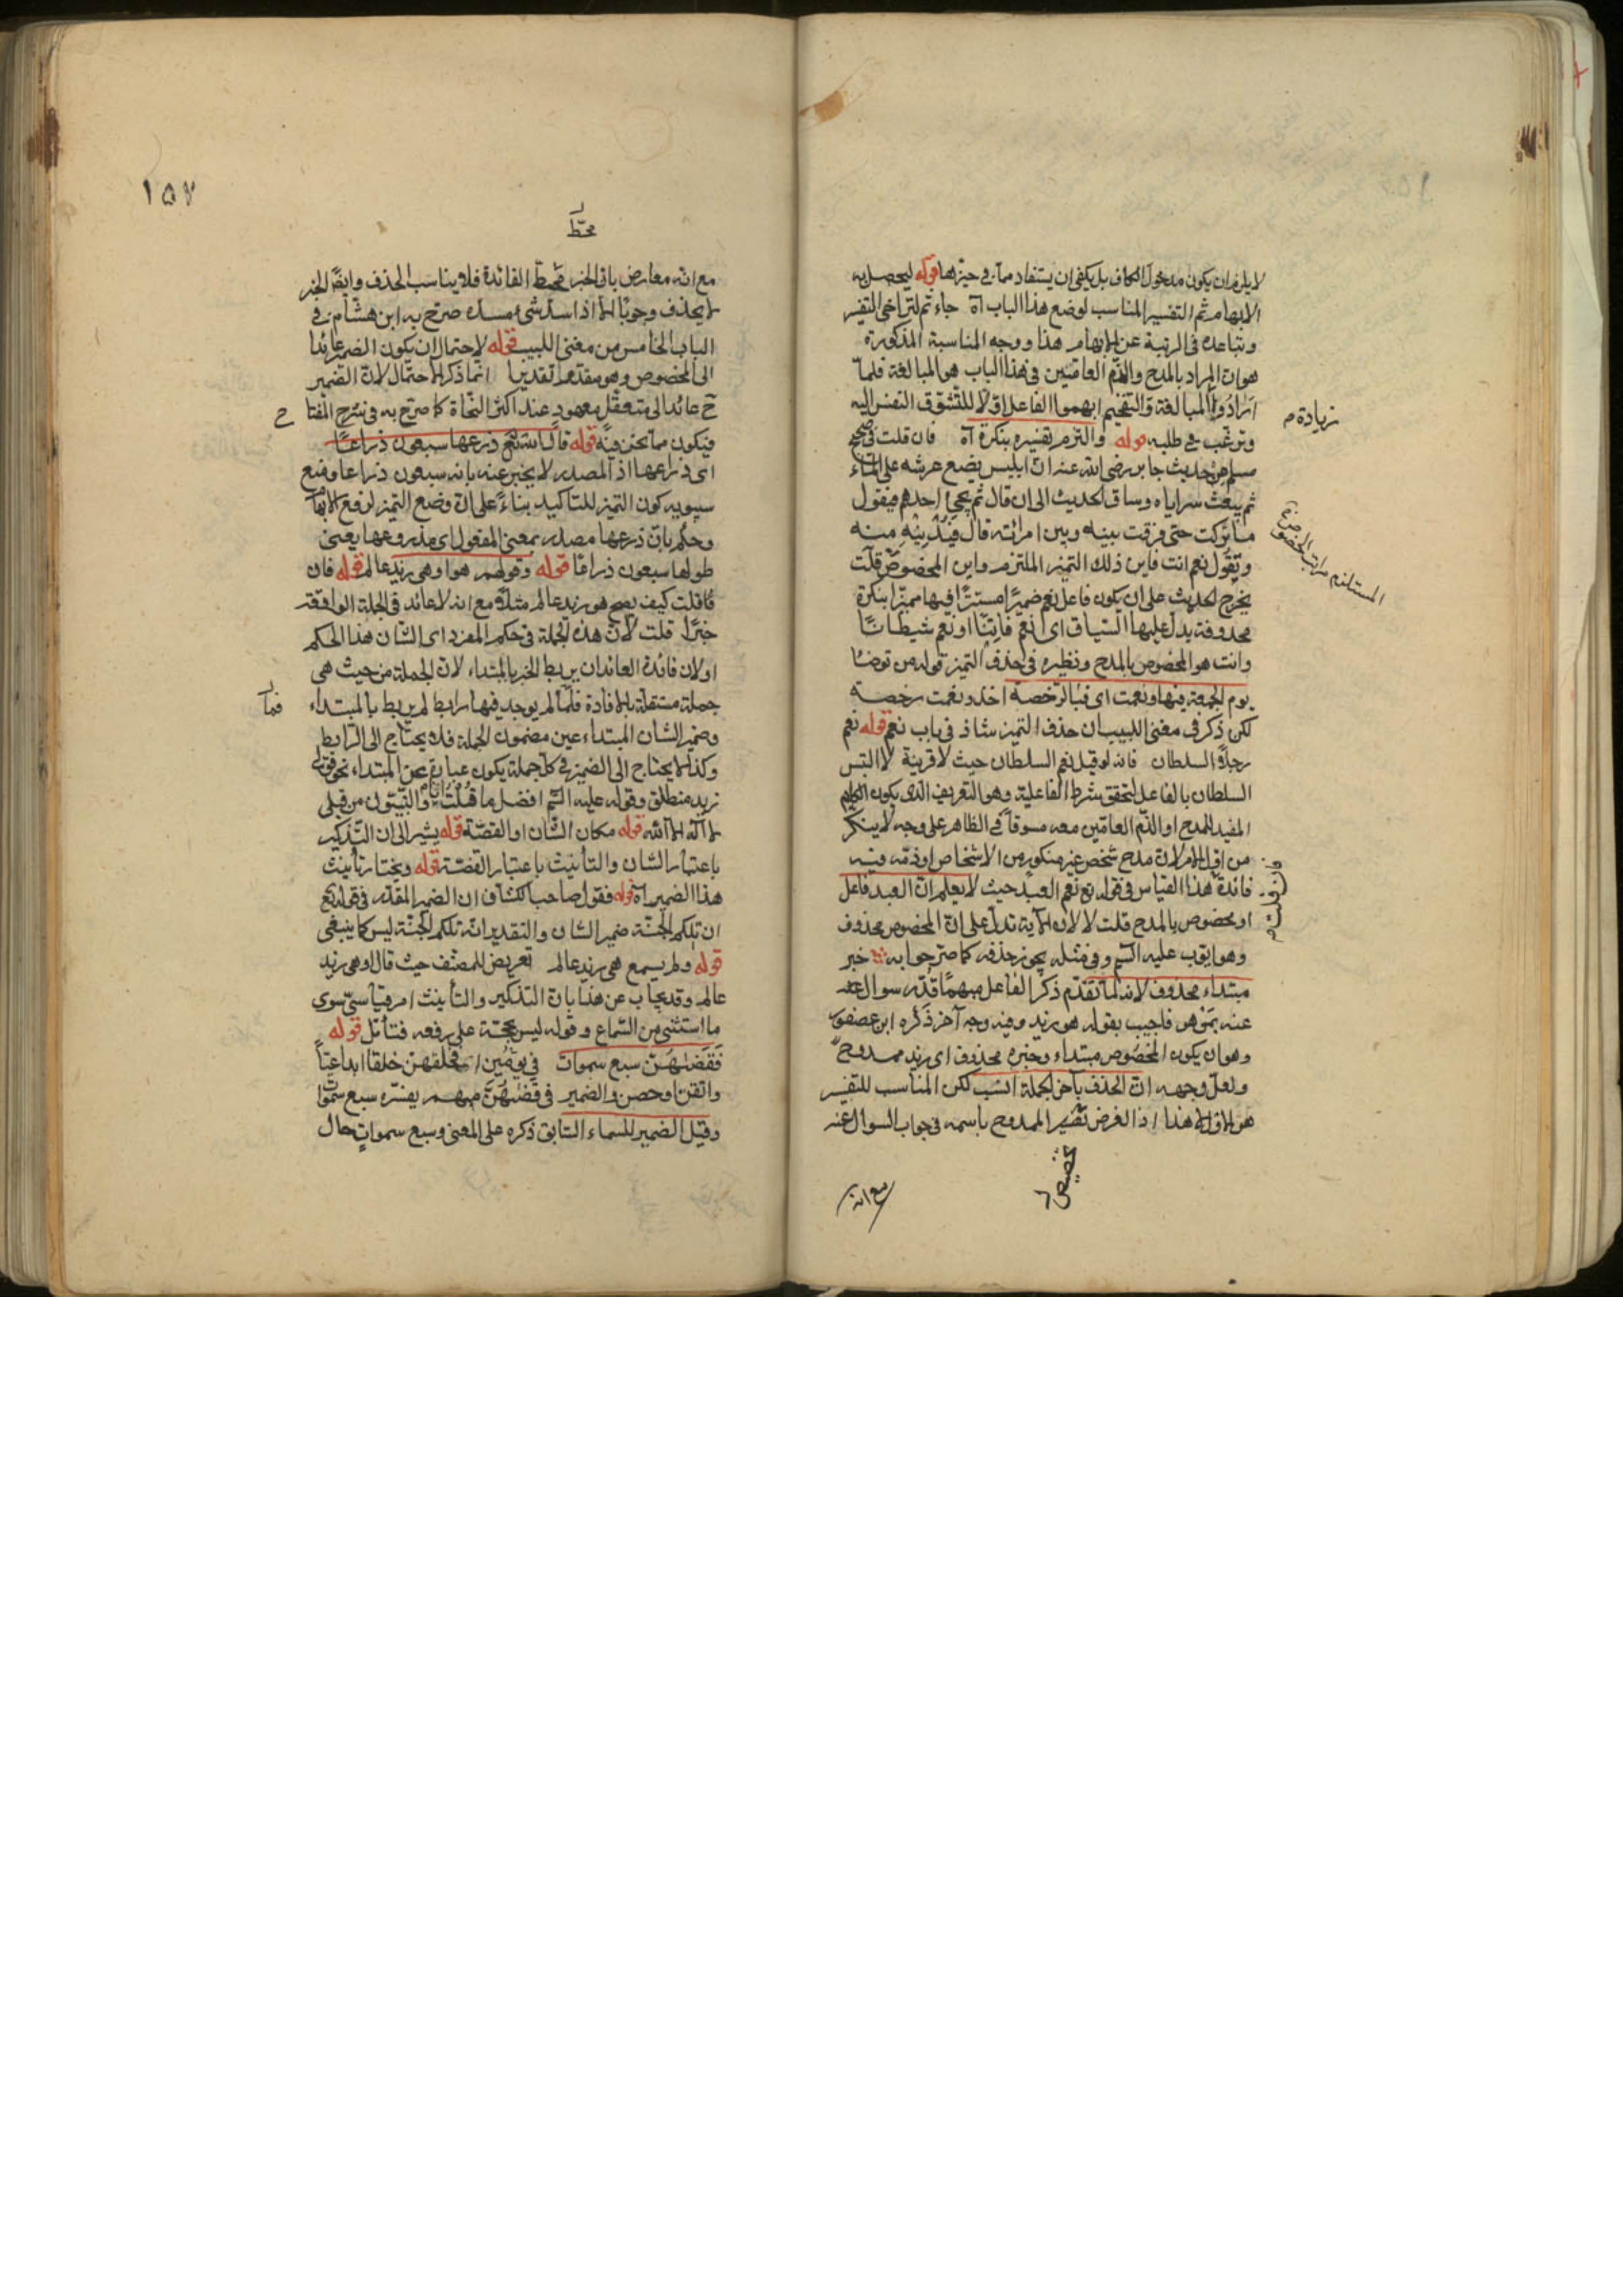 لا يلزم ان يكون مدخول الكاف بل يكفى ان يستفاد مما فى حيزها قوله ليحصل به
الابهام ثم التفسير المناسب لوضع هذا الباب آه جاء ثم لتراخى التفسير
وتباعده فى الرتبة عن الابهام هذا ووجه المناسبة المذكورة
هو ان المراد بالمدح والذم العامين فى هذا الباب هو المبالغة فلما
ارادوا المبالغة والتفخيم ابهموا الفاعل اولا للتشوق النفس اليه
وترغب فى طلبه قوله والتزم تفسيره بنكرة آه فان قلت فى صحيح
مسلم من حديث جابر رضى الله عنه ان ابليس يضع عرشه على الماء
ثم يبعث سراياه وساق الحديث الى ان قال ثم يجئ احدهم فيقول
ما تركت حتى فرقت بينه وبين امرأته قال فيدنيه منه
ويقول نعم انت فاين ذلك التميز الملتزم واين المخصوص قلت
يخرج الحديث على ان يكون فاعل نعم ضميرا مستترا فيها مميزا بنكرة
محذوفة يدل عليها السياق اى نعم فاتنا او نعم شيطانا
وانت هو المخصوص بالمدح ونظيره فى حذف التميز قوله من توضأ
يوم الجمعة فبها ونعمت اى فبالرخصة اخذ ونعمت رخصة
لكن ذكر فى مغنى اللبيب ان حذف التميز شاذ فى باب نعم قوله نعم
رجلا السلطان فانه لو قيل نعم السلطان حيث لا قرينة لالتبس
السلطان بالفاعل لتحقق شرط الفاعلية وهو التعريف الذى يكون
المفيد للمدح او الذم العامين معه مسوقا فى الظاهر على وجه لا ينكر
من اول الامر لان مدح شخص غير منكور من الاشخاص او ذمه فيه
فائدة هذا القياس فى قوله تع نعم العبد حيث لا يعلم ان العبد فاعل
او مخصوص بالمدح قلت لا لان الآية تدل على ان المخصوص محذوف
وهو ايوب عليه السم وفى مثله يجوز حذفه كما صرحوا به خبر
مبتداء محذوف لانه لما تقدم ذكر الفاعل مبهما قدر سوال
عنه بمن هو فاجيب بقوله هو زيد وفيه وجه آخر ذكره ابن عصفور
وهو ان يكون المخصوص مبتداء وخبره محذوف اى زيد ممدوح
ولعل وجهه ان الحذف بآخر الجملة انسب لكن المناسب للتفسير
هو الاول هذا اذ الغرض تفسير الممدوح باسمه فى جواب السوال عنه
زيادة م
مع انه
١٥٧
محط
مع انه معارض بان الخبر محط الفائدة فلا يناسب الحذف وايضا الخبر
لا يحذف وجوبا الا اذا سد شئ مسده صرح به ابن هشام فى
الباب الخامس من مغنى اللبيب قوله لاحتمال ان يكون الضمير عائدا
الى المخصوص وهو مقدم تقديرا انما ذكر الاحتمال لان الضمير
ح عائد الى متعقل معهود عند اكثر النحاة كما صرح به فى شرح المفتا ح
فيكون مما نحن فيه قوله قال تع ذرعها سبعون ذراعا
اى ذراعها اذ المصدر لا يخبر عنه بانه سبعون ذراعا ومنع
سيبويه كون التميز للتأكيد بناء على ان وضع التميز لرفع الابهام
وحكم بان ذرعها مصدر بمعنى المفعول اى مذروعها يعنى
طولها سبعون ذراعا قوله وقولهم هو او هى زيد عالم قوله فان
قلت كيف يصح هو زيد عالم مثلا مع انه لا عائد فى الجملة الواقعة
خبرا قلت لان هذه الجملة فى حكم المفرد اى الشان هذا الحكم
او لان فائدة العائد ان يربط الخبر بالمبتداء لان الجملة من حيث هى
جملة مستقلة بالافادة فلما لم يوجد فيها رابط لم يربط بالمبتداء
وضمير الشان المبتداء عين مضمون الجملة فلا يحتاج الى الرابط
وكذا لا يحتاج الى الضمير فى كل جملة يكون عبارة عن المبتداء نحو قولى
زيد منطلق وقوله عليه السم افضل ما قلت انا والنبيون من قبلى
لا اله الا الله قوله مكان الشان او القصة قوله يشير الى ان التذكير
باعتبار الشان والتأنيث باعتبار القصة قوله ويختار تأنيث
هذا الضمير آه قوله فقول صاحب الكشاف ان الضمير المقدر فى قوله تع
ان تلكم الجنة ضمير الشان والتقدير انه تلكم الجنة ليس كما ينبغى
قوله ولم يسمع هى زيد عالم تعريض للمصنف حيث قال او هى زيد
عالم وقد يجاب عن هذا بان التذكير والتأنيث امر قياسى سوى
ما استثنى من السماع وقوله ليس بحجة على رفعه فتأمل قوله
فقضيهن سبع سموات فى يومين اى فخلقهن خلقا ابداعيا
واتقن او حصن والضمير فى قضيهن مبهم يفسره سبع سموات
وقيل الضمير للسماء السابق ذكره على المعنى وسبع سموات حال